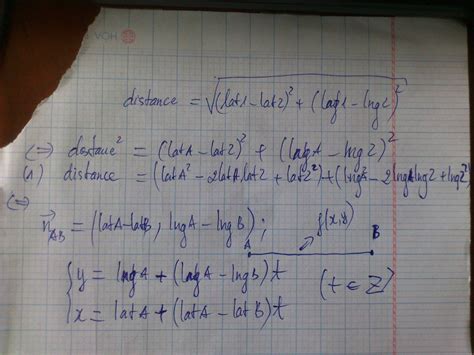 distance = √(lat1 - lat2)² + (lng1 - lng2)²
<=> distance² = (latA - lat2)² + (lngA - lng2)²
(1) distance = (latA² - 2latA.lat2 + lat2²) + (lng² - 2lngAlng2 + lng2²
<=>
n⃗AB = (latA - latB, lngA - lngB); A B
{ y = lngA + (lngA - lngB)t
x = latA + (latA - latB)t (t ∈ Z)